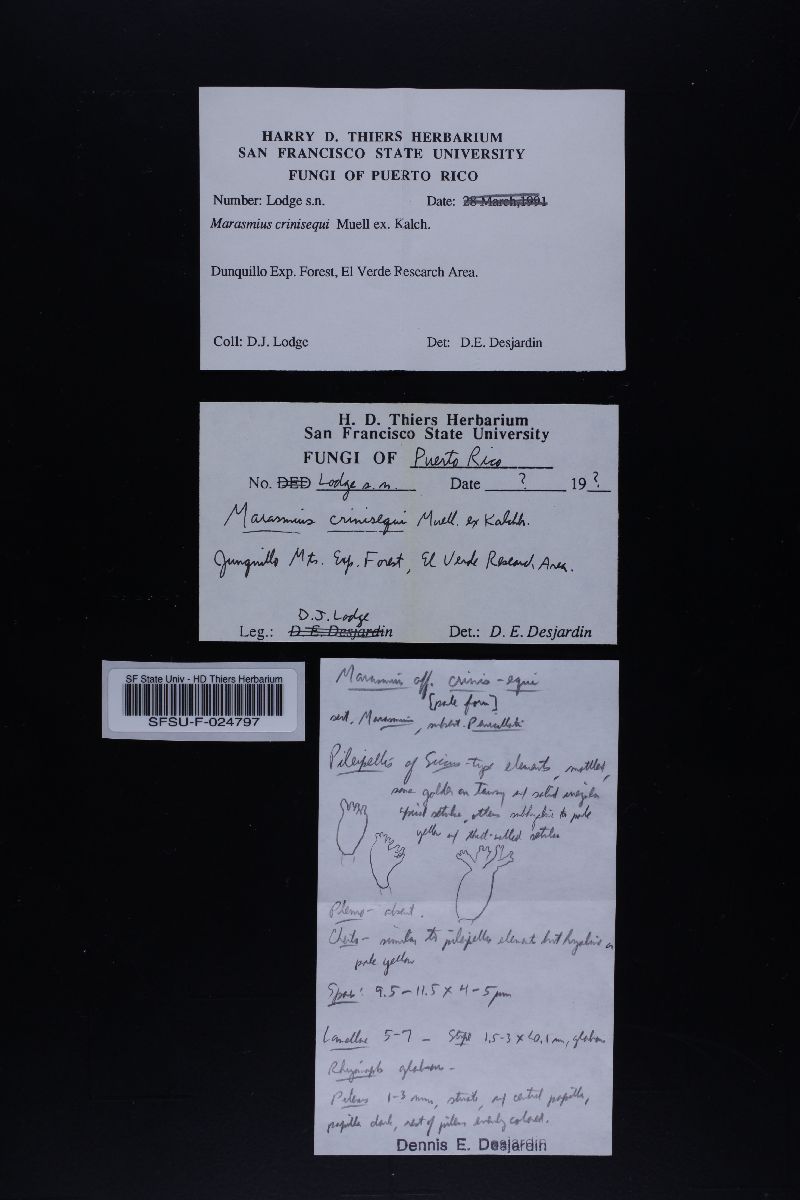 HARRY D. THIERS HERBARIUM
SAN FRANCISCO STATE UNIVERSITY
FUNGI OF PUERTO RICO
Number: Lodge s.n. Date: 28 March, 1991
Marasmius crinisequi Muell ex. Kalch.
Dunquillo Exp. Forest, El Verde Research Area.
Coll: D.J. Lodge Det: D.E. Desjardin
H. D. Thiers Herbarium
San Francisco State University
FUNGI OF Puerto Rico
No. DED Lodge s.n. Date ? 19 ?
Marasmius crinisequi Muell. ex Kalchb.
Junquillo Mts. Exp. Forest, El Verde Research Area.
D.J. Lodge
Leg.: D. E. Desjardin Det.: D. E. Desjardin
SF State Univ - HD Thiers Herbarium
SFSU-F-024797
Marasmius aff. crinis-equi
[pale form]
sect. Marasmius, subsect.
Pileipellis of Siccus-type elements, mottled,
some golden or tawny w/ solid irregular
setulae, others subhyaline to pale
yellow w/ thick-walled setulae
Pleuro- absent.
Cheilo- similar to pileipellis elements but hyaline or
pale yellow
Spores: 9.5-11.5 x 4-5 µm
Lamellae 5-7 - Stipe 1.5-3 x <0.1 mm, glabrous
Rhizomorphs glabrous-
Pileus 1-3 mm, striate, w/ central papilla,
papilla dark, rest of pileus evenly colored.
Dennis E. Desjardin